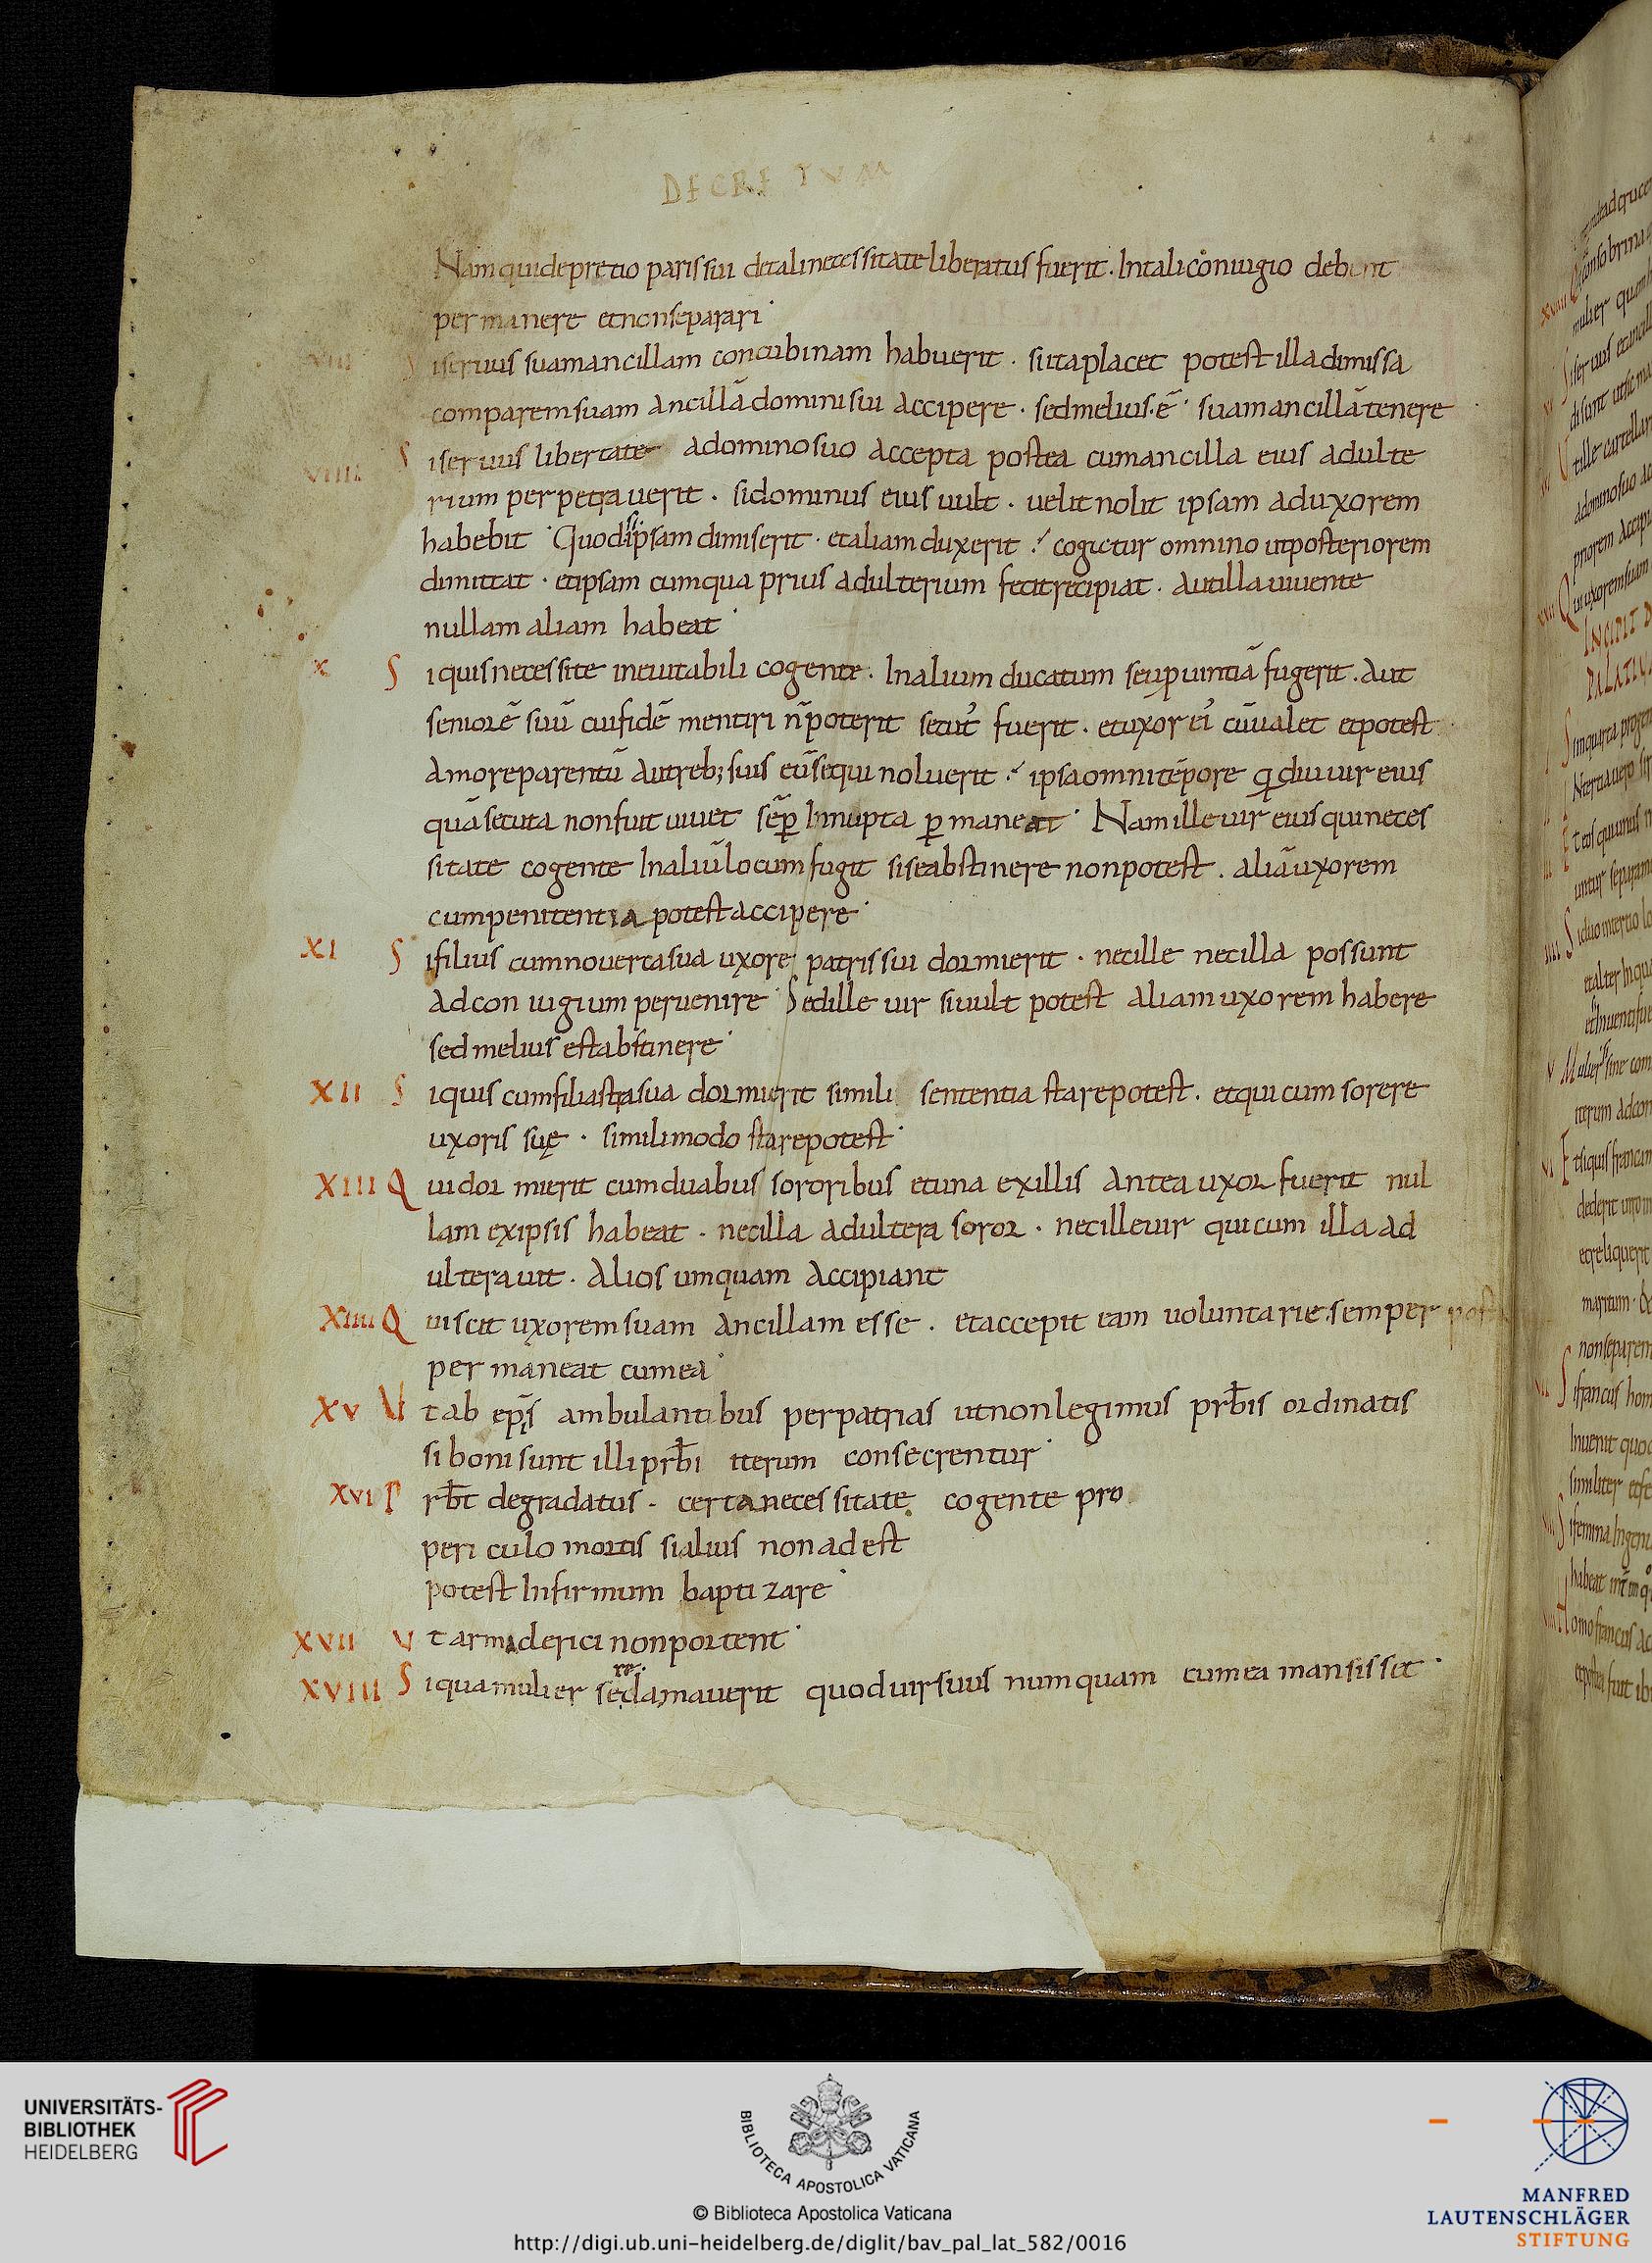 DECRETVM
Nam qui de pretio paris sui de tali necessitate liberatus fuerit. In tali coniugio debent
permanere et non separari
VIII Si seruus suam ancillam concubinam habuerit. si ita placet potest illa dimissa
comparem suam ancillā domini sui accipere. sed melius. ē suam ancillā tenere
VIIII Si seruus libertate a domino suo accepta postea cum ancilla eius adulte
rium perpetrauerit. si dominus eius uult. uelit nolit ipsam ad uxorem
habebit Quod si ipsam dimiserit. et aliam duxerit cogetur omnino ut posteriorem
dimittat. et ipsam cum qua prius adulterium fecit recipiat. aut illa uiuente
nullam aliam habeat
X Si quis necessite ineuitabili cogente. In alium ducatum seu ꝓuintiā fugerit. aut
seniorē suū cui fidē mentiri n̄ poterit secut᾽ fuerit. et uxor ei᾽ cū ualet et potest
amore parentū aut reb; suis eū sequi noluerit ipsa omni tēpore ꝗdiu uir eius
quā secuta non fuit uiuet sēꝑ Innupta ꝑmaneat Nam ille uir eius qui neces
sitate cogente In aliū locum fugit si se abstinere non potest. aliā uxorem
cum penitentia potest accipere
XI Si filius cum nouerca sua uxore patris sui dormierit. nec ille nec illa possunt
ad coniugium peruenire Sed ille uir si uult potest aliam uxorem habere
sed melius est abstinere
XII Si quis cum filiastra sua dormierit simili sententia stare potest. et qui cum sorere
uxoris suę. simili modo stare potest
XIII Qui dormierit cum duabus sororibus et una ex illis antea uxor fuerit nul
lam ex ipsis habeat. nec illa adultera soror. nec ille uir qui cum illa ad
ulterauit. Alios umquam accipiant
XIIII Qui scit uxorem suam ancillam esse. et accepit eam uoluntarie. semper post
permaneat cum ea
XV Ut ab ep̄is ambulantibus per patrias ut non legimus prb̄is ordinatis
si boni sunt illi prb̄i iterum consecrentur
XVI Prb̄t degradatus. certa necessitate cogente pro
periculo mortis si alius non adest
potest Infirmum baptizare
XVII Vt arma clerici non portent
XVIII Si qua mulier se reclamauerit quod uir suus numquam cum ea mansisset
UNIVERSITÄTS-
BIBLIOTHEK
HEIDELBERG
BIBLIOTECA APOSTOLICA VATICANA
© Biblioteca Apostolica Vaticana
http://digi.ub.uni-heidelberg.de/diglit/bav_pal_lat_582/0016
MANFRED
LAUTENSCHLÄGER
STIFTUNG